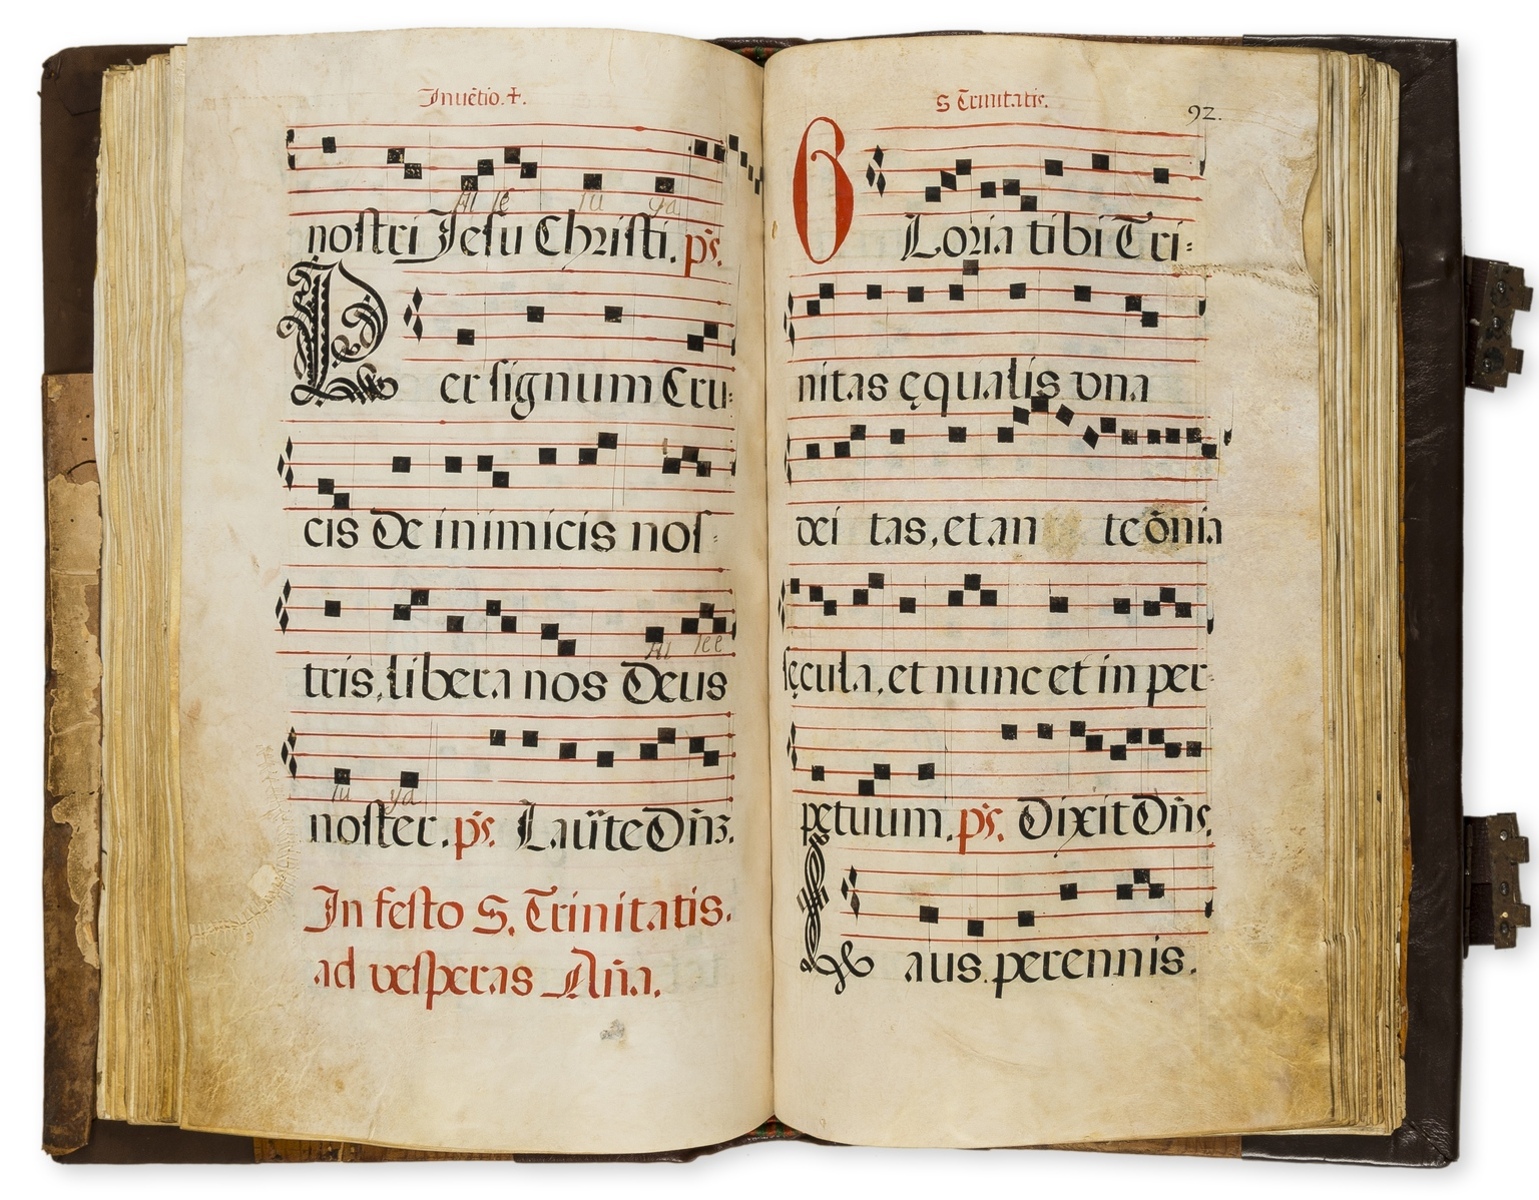 Inuẽtio. ✝.
Al le lu ya
nostri Jesu Christi. ps.
Per signum Cru-
cis de inimicis nos-
tris, libera nos Deus
Al lee
noster. ps. Laũte Dñs.
lu ya
In festo S. Trinitatis.
ad vesperas Aña.
S Trinitatis.
92.
GLoria tibi Tri-
nitas ęqualis vna
dei tas, et an te õnia
sęcula, et nunc et in per-
petuum. ps. Dixit Dñs.
Laus perennis.